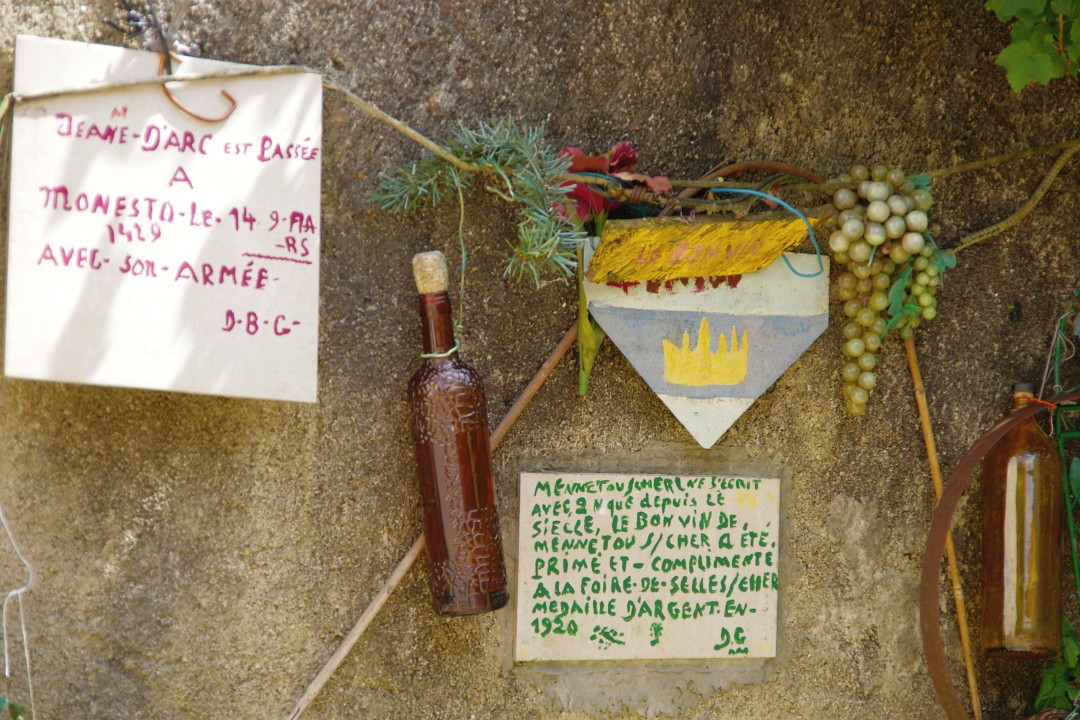 JEANE-D'ARC EST PASSÉE
A
MONESTO-LE-14 9-MA
1429
-RS
AVEC-SON-ARMÉE-
D-B-G-
LE BON VIN
MENNETOU S/CHER NE S'ECRIT
AVEC 2 N que depuis LE
SIECLE, LE BON VIN DE.
MENNETOU S/CHER A ÉTÉ.
PRIMÉ ET-COMPLIMENTE
A LA FOIRE-DE-SELLES/CHER
MEDAILLE D'ARGENT.EN-
1920
D.G